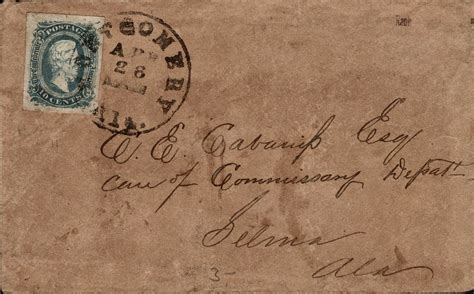 POSTAGE
TEN CENTS
MONTGOMERY
APR
26
ALA.
C. E. Cabaniss Esq
care of Commissary Depatt
Selma
Ala
3-